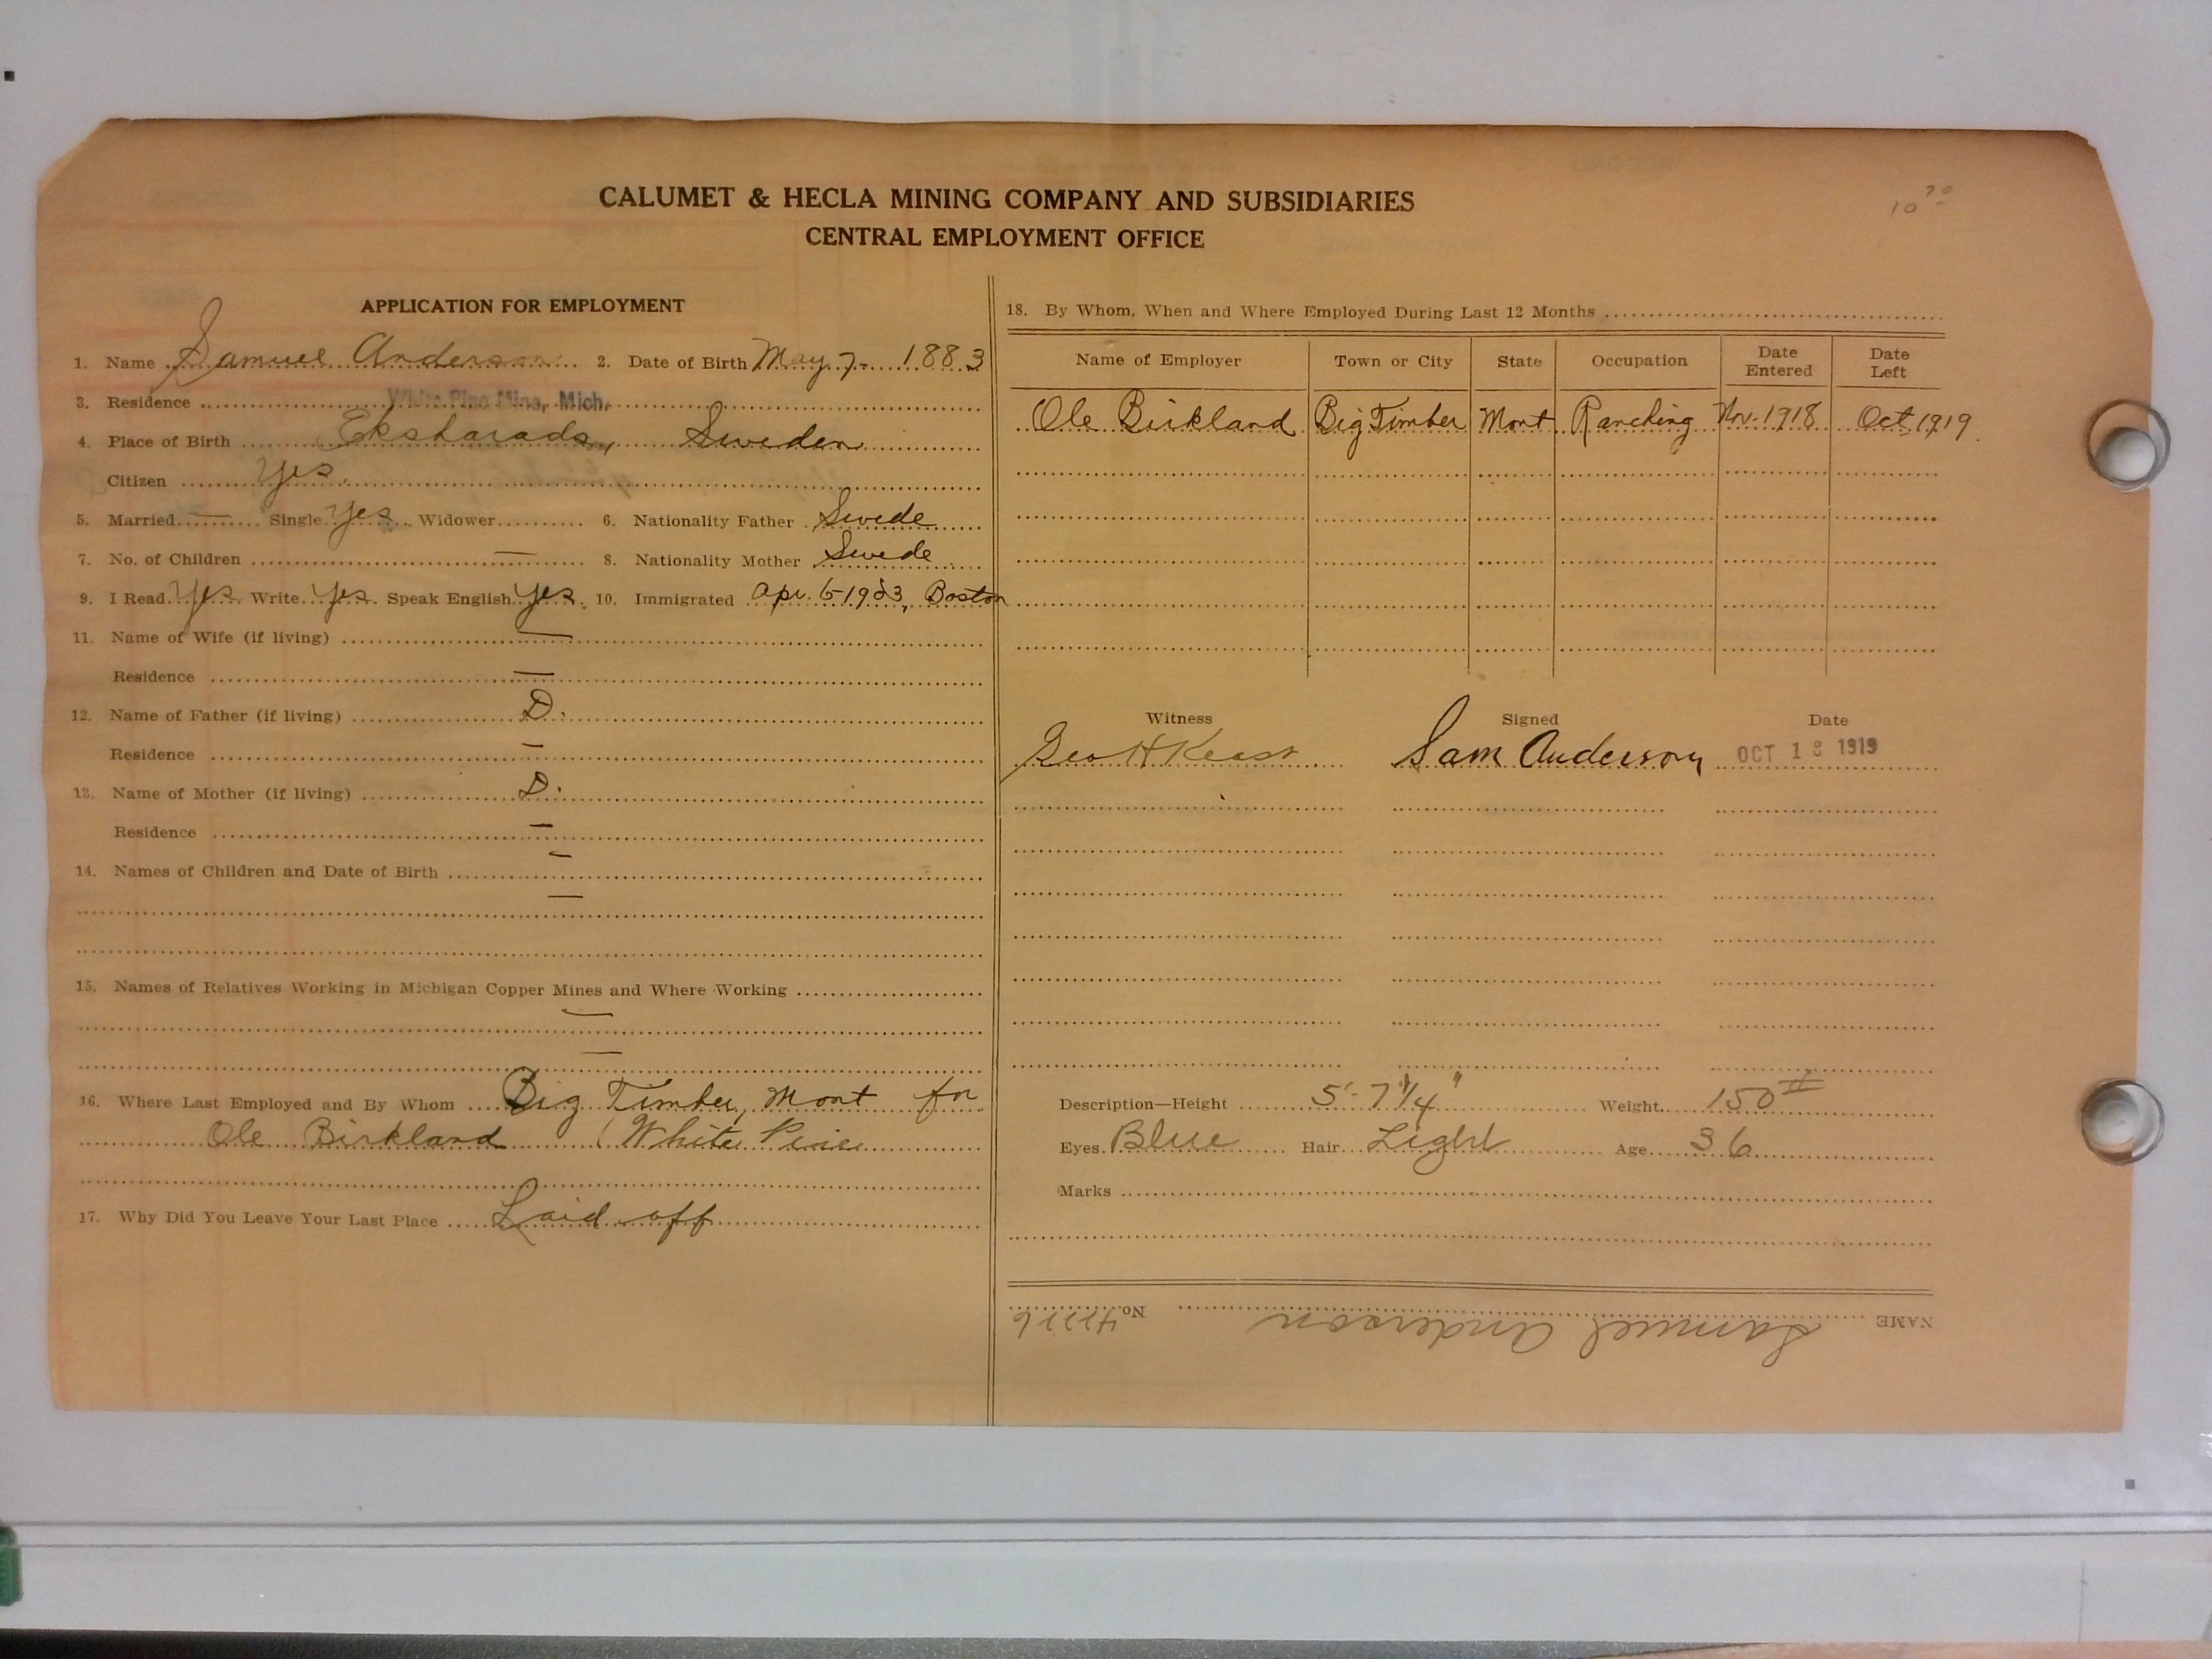 CALUMET & HECLA MINING COMPANY AND SUBSIDIARIES
CENTRAL EMPLOYMENT OFFICE
APPLICATION FOR EMPLOYMENT
1. Name Samuel Anderson 2. Date of Birth May 7- 1883
3. Residence White Pine Mine, Mich.
4. Place of Birth Eksharads, Sweden
Citizen Yes.
5. Married — Single Yes Widower 6. Nationality Father Swede
7. No. of Children — 8. Nationality Mother Swede
9. I Read Yes Write Yes Speak English Yes. 10. Immigrated Apr. 6-1903, Boston
11. Name of Wife (if living) —
Residence —
12. Name of Father (if living) D.
Residence —
13. Name of Mother (if living) D.
Residence —
14. Names of Children and Date of Birth —
—
15. Names of Relatives Working in Michigan Copper Mines and Where Working
—
—
16. Where Last Employed and By Whom Big Timber, Mont for
Ole Birkland (White Pine
17. Why Did You Leave Your Last Place Laid off
18. By Whom, When and Where Employed During Last 12 Months
Name of Employer Town or City State Occupation Date Entered Date Left
Ole Birkland Big Timber Mont Ranching Nov-1918 Oct 1919
Witness Signed Date
Geo H Keast Sam Anderson OCT 18 1919
Description—Height 5'-7 1/4" Weight 150#
Eyes Blue Hair Light Age 36
Marks
NAME Samuel Anderson No.